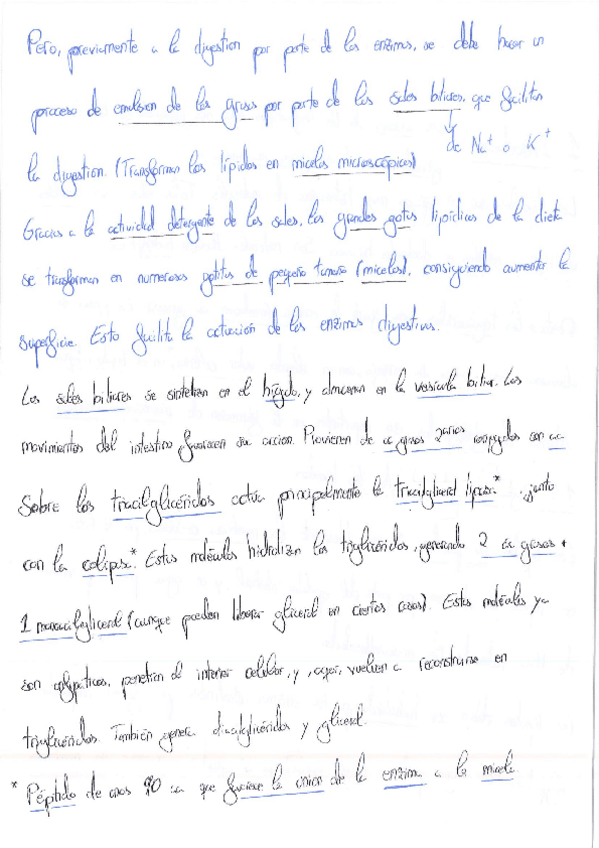 Pero, previamente a la digestion por parte de las enzimas, se debe hacer un
proceso de emulsion de las grasas por parte de las sales biliares, que facilitan
de Na+ o K+
la digestion. (Transforman los lípidos en micelas microscópicas)
Gracias a la actividad detergente de las sales, las grandes gotas lipídicas de la dieta
se transforman en numerosas gotitas de pequeño tamaño (micelas), consiguiendo aumentar la
superficie. Esto facilita la actuación de las enzimas digestivas.
Las sales biliares se sintetizan en el hígado, y almacenan en la vesícula biliar. Los
movimientos del intestino favorecen su accion. Provienen de ac grasos 2arios conjugados con aa
Sobre los triacilglicéridos actúa principalmente la triacilglicerol lipasa* junto
con la colipasa*. Estas moléculas hidrolizan los triglicéridos, generando 2 ac grasos +
1 monoacilglicerol (aunque pueden liberar glicerol en ciertos casos). Estas moléculas ya
son apolares, penetran al interior celular, y, vuelven a reconstruirse en
triglicéridos. También genera diacilglicéridos y glicerol.
* Péptido de unos 90 aa que favorece la union de la enzima a la micela